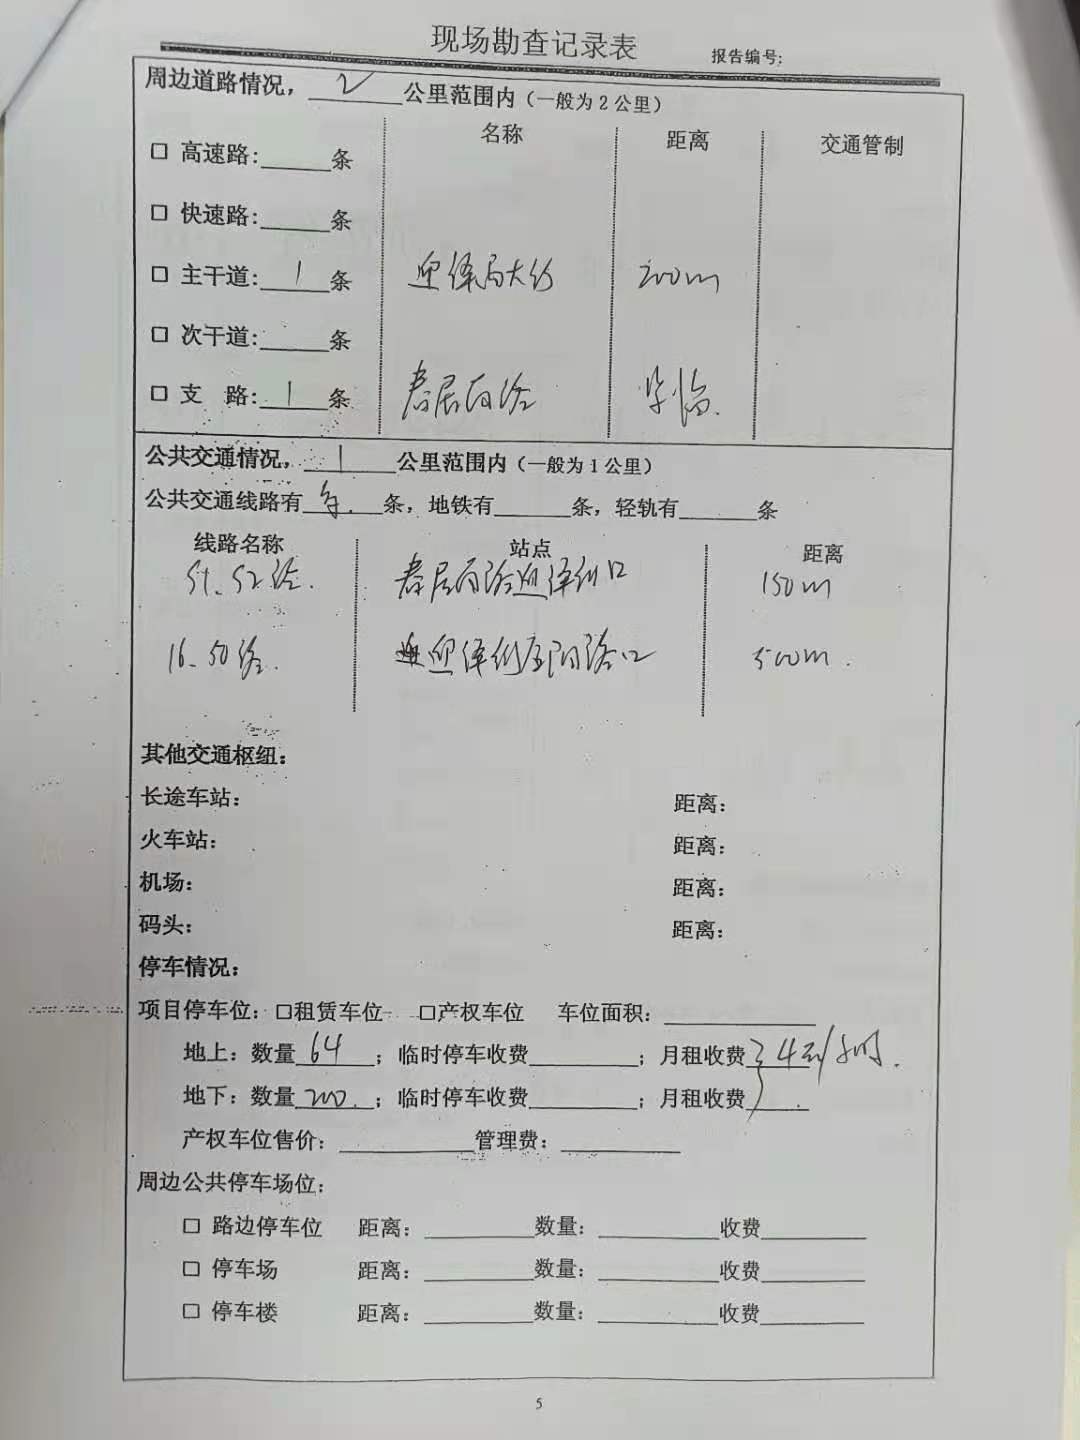 现场勘查记录表
报告编号:
周边道路情况，2公里范围内（一般为2公里）
名称 距离 交通管制
□ 高速路:______条
□ 快速路:______条
□ 主干道:1条 迎泽 大街 200m
□ 次干道:______条
□ 支 路:1条
公共交通情况，1公里范围内（一般为1公里）
公共交通线路有 条，地铁有______条，轻轨有______条
线路名称 站点 距离
51、52路. 迎泽街口 150m
16、50路. 迎泽街 路口 500m.
其他交通枢纽：
长途车站： 距离：
火车站： 距离：
机场： 距离：
码头： 距离：
停车情况：
项目停车位：□租赁车位 □产权车位 车位面积：______
地上：数量64；临时停车收费______；月租收费 4元/小时.
地下：数量200.；临时停车收费______；月租收费______
产权车位售价：______管理费：______
周边公共停车场位：
□ 路边停车位 距离：______数量：______收费______
□ 停车场 距离：______数量：______收费______
□ 停车楼 距离：______数量：______收费______
5